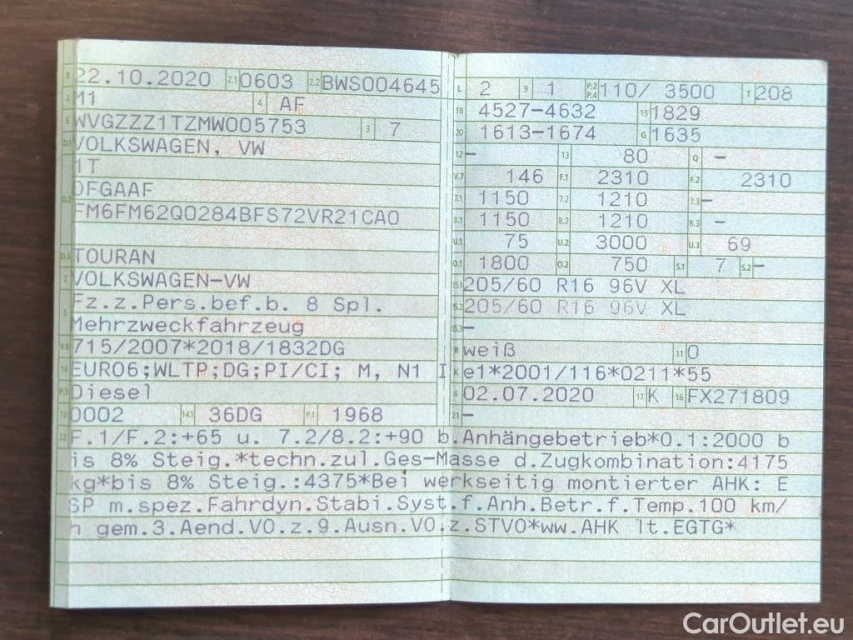 B 22.10.2020 2.1 0603 2.2 BWS004645
J M1 4 AF
E WVGZZZ1TZMW005753 3 7
D.1 VOLKSWAGEN, VW
1T
D.2 DFGAAF
FM6FM62Q0284BFS72VR21CA0
D.3 TOURAN
2 VOLKSWAGEN-VW
5 Fz.z.Pers.bef.b. 8 Spl.
Mehrzweckfahrzeug
V.9 715/2007*2018/1832DG
14 EURO6;WLTP;DG;PI/CI; M, N1 I
P.3 Diesel
10 0002 14.1 36DG P.1 1968
L 2 9 1 P.2 P.4 110/ 3500 T 208
18 4527-4632 19 1829
20 1613-1674 G 1635
12 – 13 80 Q –
V.7 146 F.1 2310 F.2 2310
7.1 1150 7.2 1210 7.3 –
8.1 1150 8.2 1210 8.3 –
U.1 75 U.2 3000 U.3 69
O.1 1800 O.2 750 S.1 7 S.2 –
15.1 205/60 R16 96V XL
15.2 205/60 R16 96V XL
15.3 –
R weiß 11 0
K e1*2001/116*0211*55
6 02.07.2020 17 K 16 FX271809
21 –
22 F.1/F.2:+65 u. 7.2/8.2:+90 b.Anhängebetrieb*O.1:2000 b
is 8% Steig.*techn.zul.Ges-Masse d.Zugkombination:4175
kg*bis 8% Steig.:4375*Bei werkseitig montierter AHK: E
SP m.spez.Fahrdyn.Stabi.Syst.f.Anh.Betr.f.Temp.100 km/
h gem.3.Aend.VO.z.9.Ausn.VO.z.STVO*ww.AHK lt.EGTG*
CarOutlet.eu